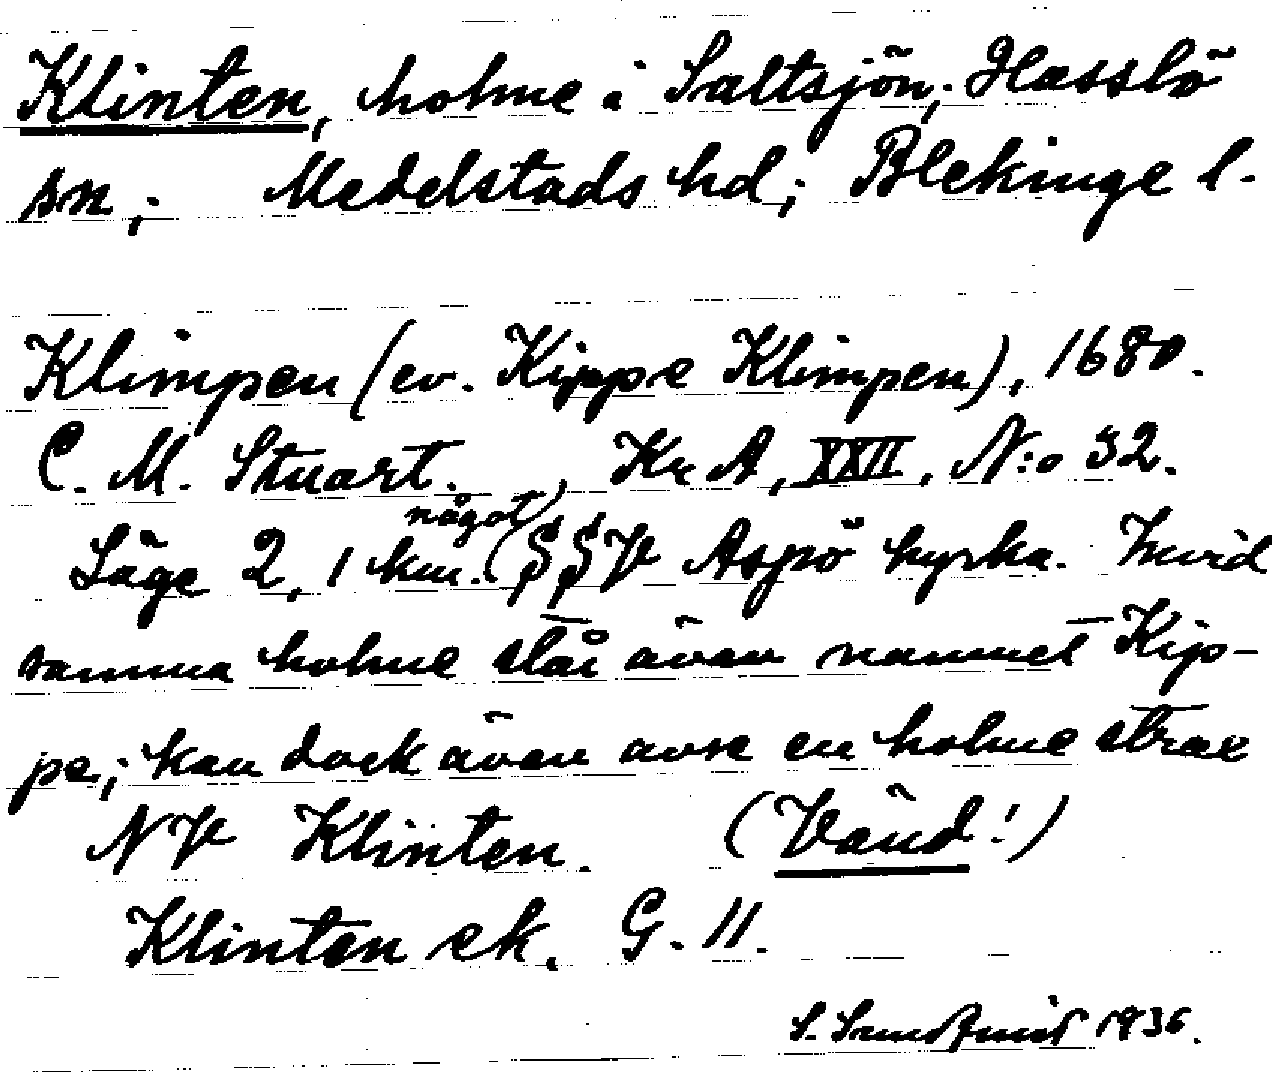 Klinten, holme i Saltsjön; Hasslö
sn; Medelstads hd; Blekinge l.
Klimpen (ev. Kippe Klimpen), 1680.
C. M. Stuart. Kr A, XXII, N:o 32.
något
Läge 2,1 km. (SSV Aspö kyrka. Invid
samma holme står även namnet Kip-
pe; kan dock även avse en holme strax
NV Klinten. (Vänd!)
Klinten ek. G. 11.
S. 1936.